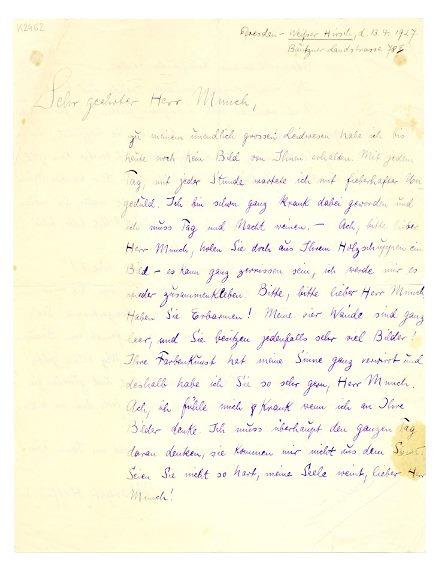 K2962
Dresden - Weißer Hirsch, d. 13. 4. 1927
Bautzner Landstrasse
Sehr geehrter Herr Munch,
zu meinem unendlich grossen Leidwesen habe ich bis
heute noch kein Bild von Ihnen erhalten. Mit jedem
Tag, mit jeder Stunde wartete ich mit fieberhafter Un-
geduld. Ich bin schon ganz krank dabei geworden und
ich muss Tag und Nacht weinen. - Ach, bitte lieber
Herr Munch, holen Sie doch aus Ihrem Holzschuppen ein
Bild - es kann ganz zerrissen sein, ich werde mir es
wieder zusammenkleben. Bitte, bitte lieber Herr Munch
Haben Sie Erbarmen! Meine vier Wände sind ganz
leer, und Sie besitzen jedenfalls sehr viel Bilder!
Ihre Farbenkunst hat meine Sinne ganz verwirrt und
deshalb habe ich Sie so sehr gern, Herr Munch.
Ach, ich fühle mich krank wenn ich an Ihre
Bilder denke. Ich muss überhaupt den ganzen Tag
daran denken, sie kommen mir nicht aus dem
Seien Sie nicht so hart, meine Seele weint, lieber Herr
Munch!